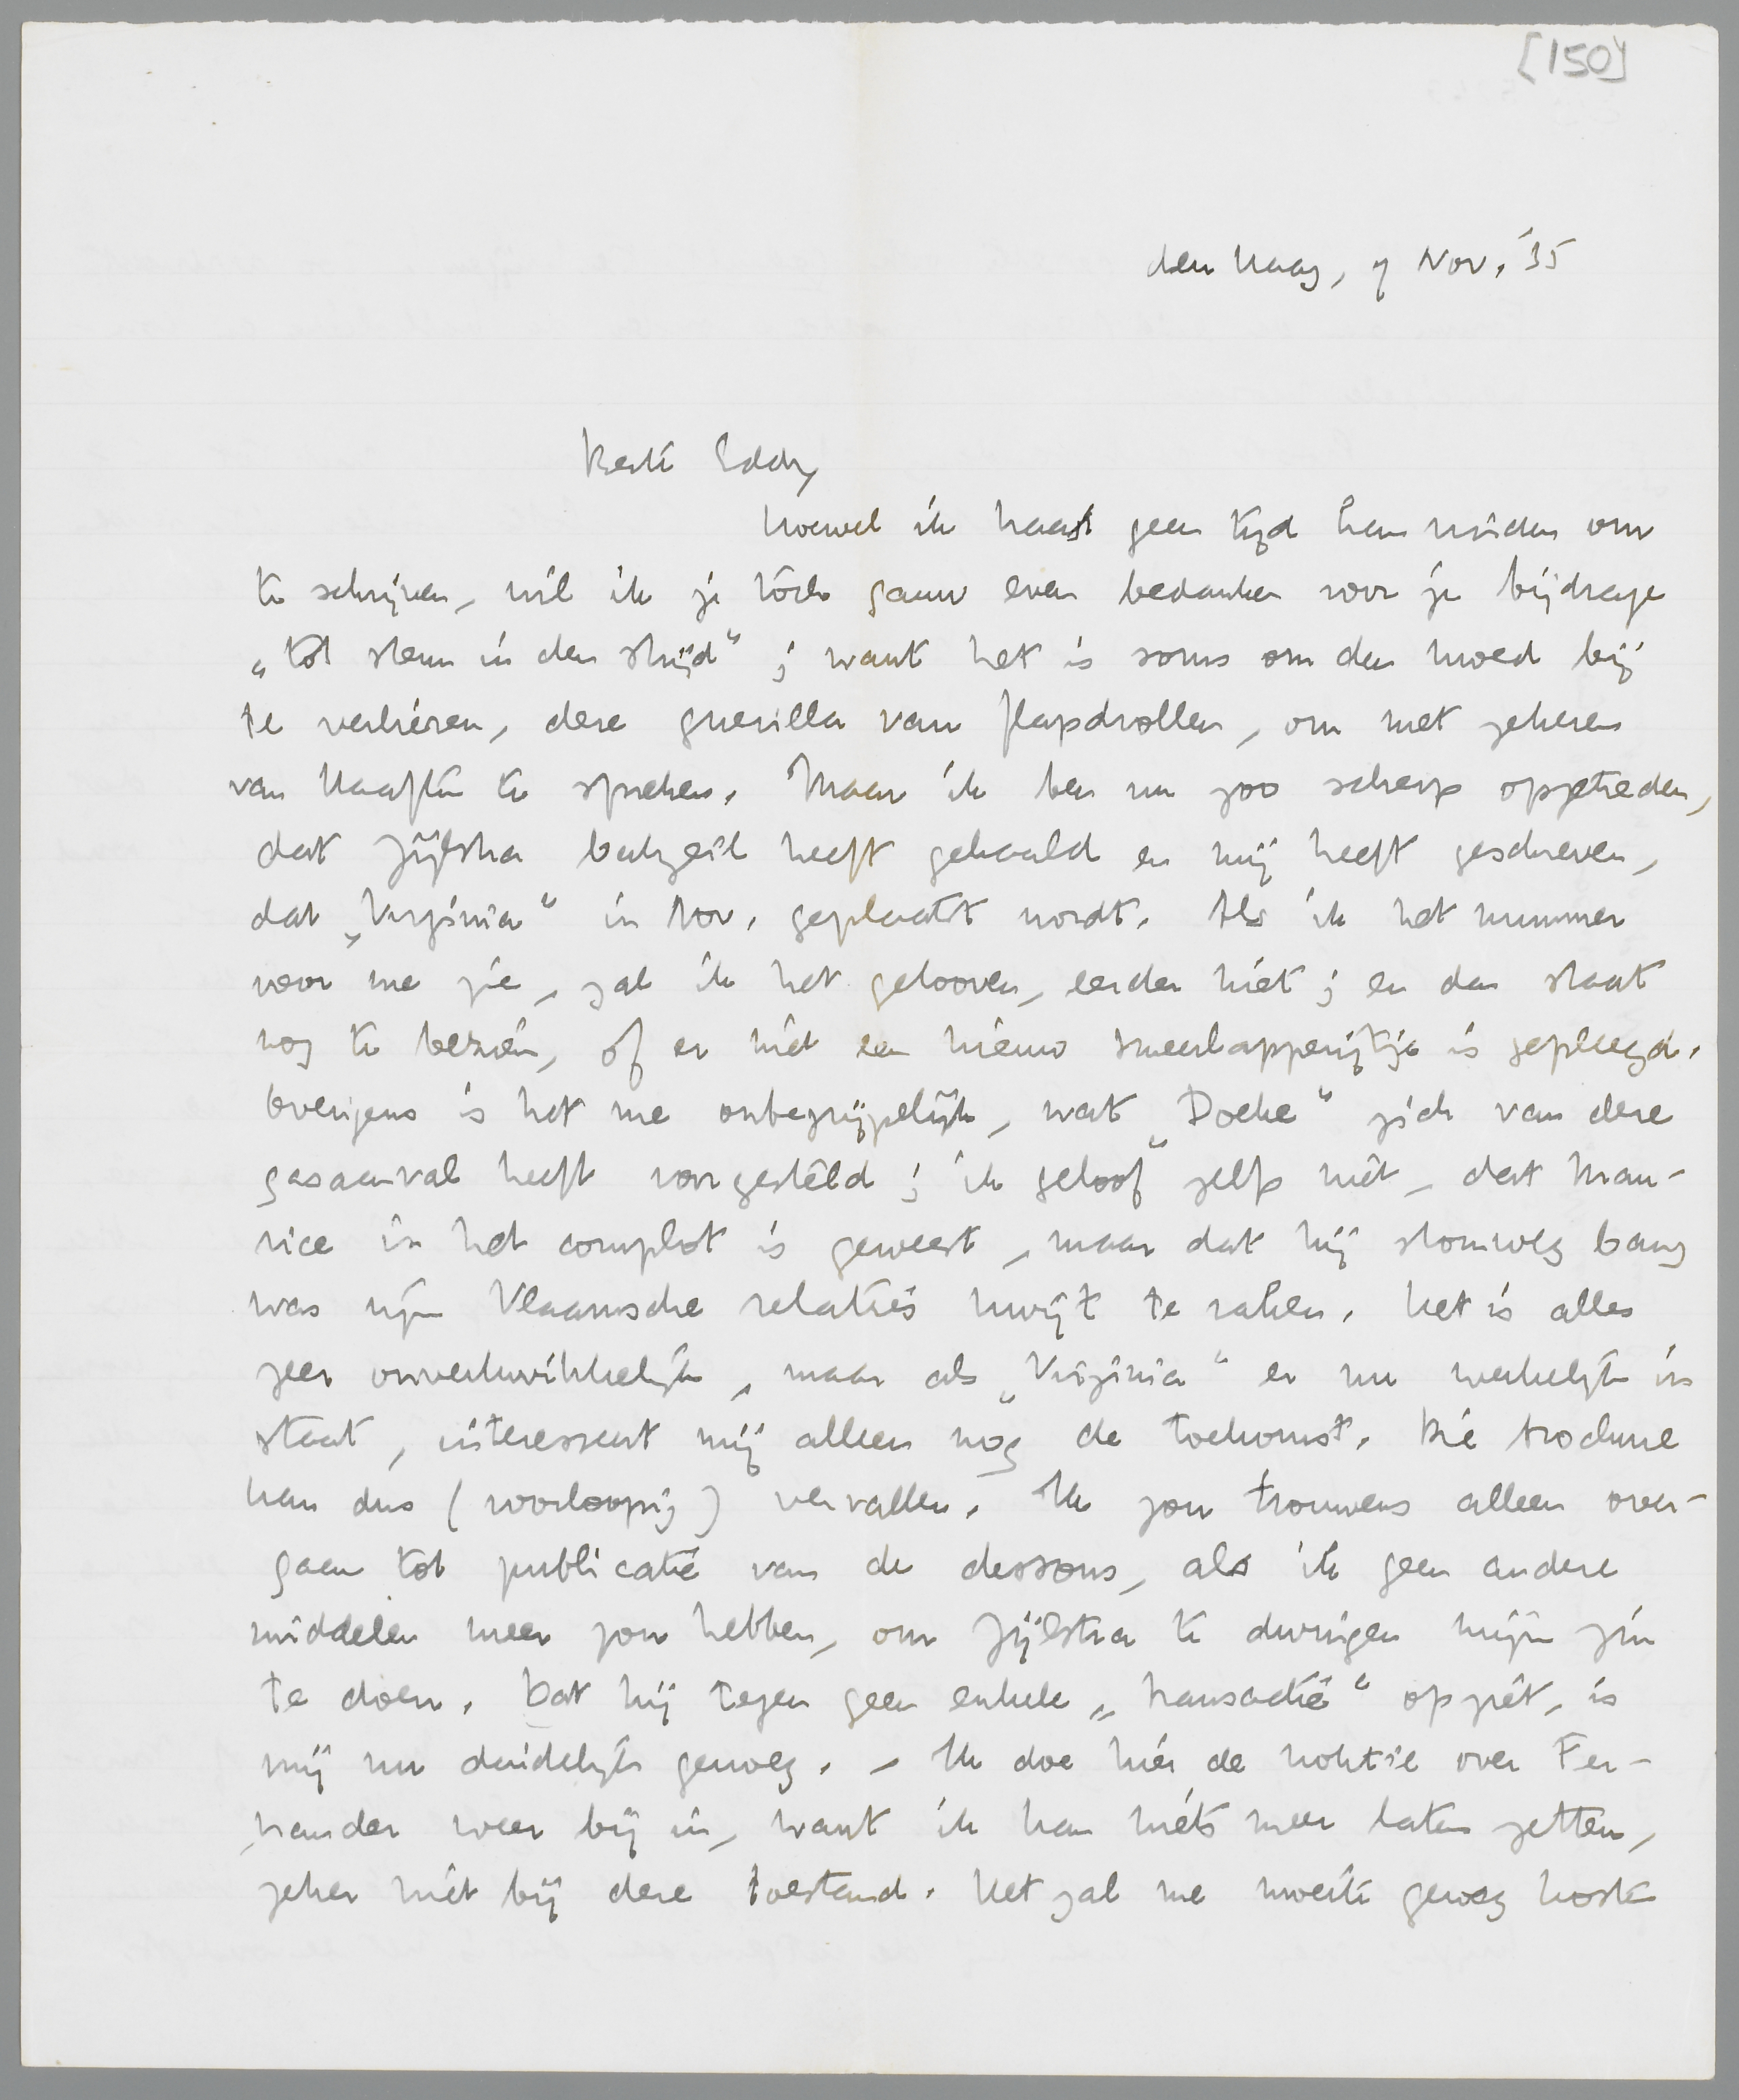 [150]
den Haag, 7 Nov. '35
Beste Eddy
Hoewel ik haast geen tijd kan vinden om
te schrijven, wil ik je tóch gauw even bedanken voor je bijdrage
„tot steun in den strijd"; want het is soms om den moed bij
te verliezen, deze guerilla van flapdrollen, om met zekeren
van Haaften te spreken. Maar ik ben nu zoo scherp opgetreden,
dat Zijlstra bakzeil heeft gehaald en mij heeft geschreven,
dat „Virginia" in Nov. geplaatst wordt. Als ik het nummer
voor me zie, zal ik het gelooven, eerder niet; en dan staat
nog te bezien, òf er niet een nieuw smeerlapperijtje is gepleegd.
Overigens is het me onbegrijpelijk, wat „Doeke" zich van deze
gasaanval heeft voorgesteld; ik geloof zelfs niet, dat Mau-
rice in het complot is geweest, maar dat hij stomweg bang
was zijn Vlaamsche relaties kwijt te raken. Het is alles
zeer onverkwikkelijk, maar als „Virginia" er nu werkelijk in
staat, interesseert mij alleen nog de toekomst. Die brochure
kan dus (voorloopig) vervallen. Ik zou trouwens alleen over-
gaan tot publicatie van de dessous, als ik geen andere
middelen meer zou hebben, om Zijlstra te dwingen mijn zin
te doen. Dat hij tegen geen enkele „transactie" opziet, is
mij nu duidelijk genoeg. – Ik doe hier de notitie over Fer-
nandez weer bij in, want ik kan niets meer laten zetten,
zeker niet bij deze toestand. Het zal me moeite genoeg kosten